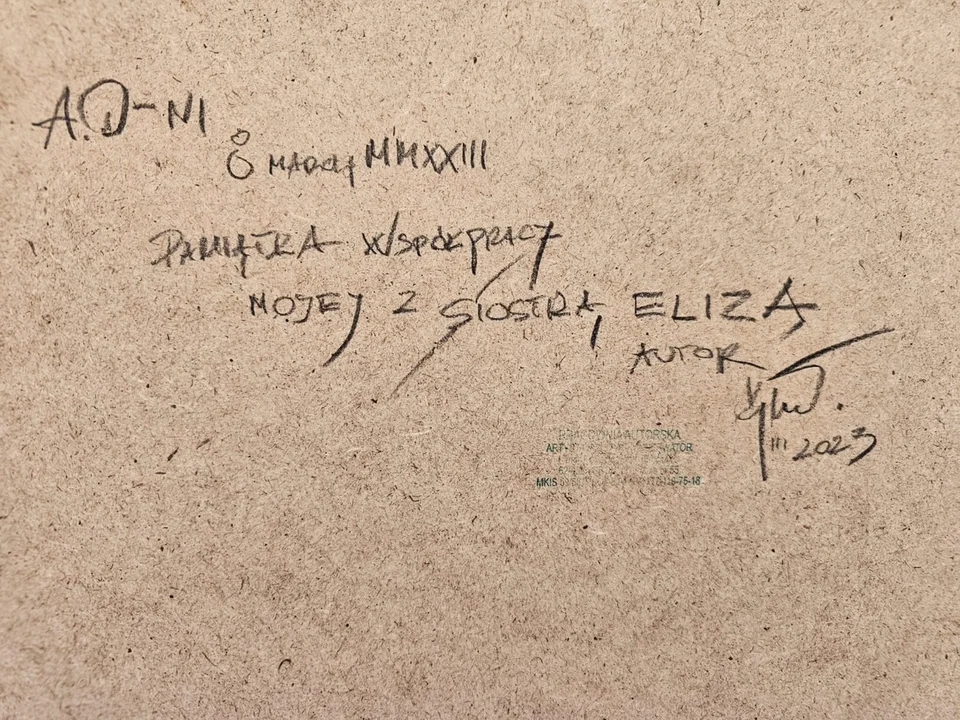 A.D-NI
8 MARCA MMXXIII
PAMIĄTKA WSPÓŁPRACY
MOJEJ Z SIOSTRĄ ELIZĄ
AUTOR
III 2023
PRACOWNIA AUTORSKA
ART-
MKIS